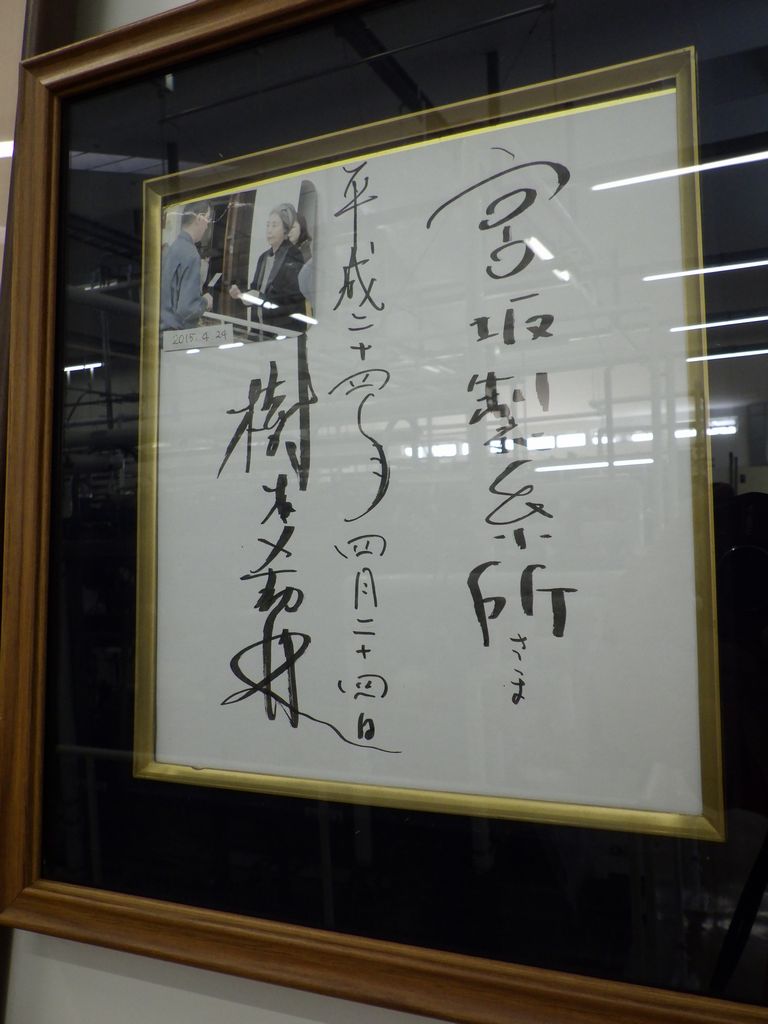 宮坂製糸所さま
平成二十四月四月二十四日
樹木希林
2015.4.24